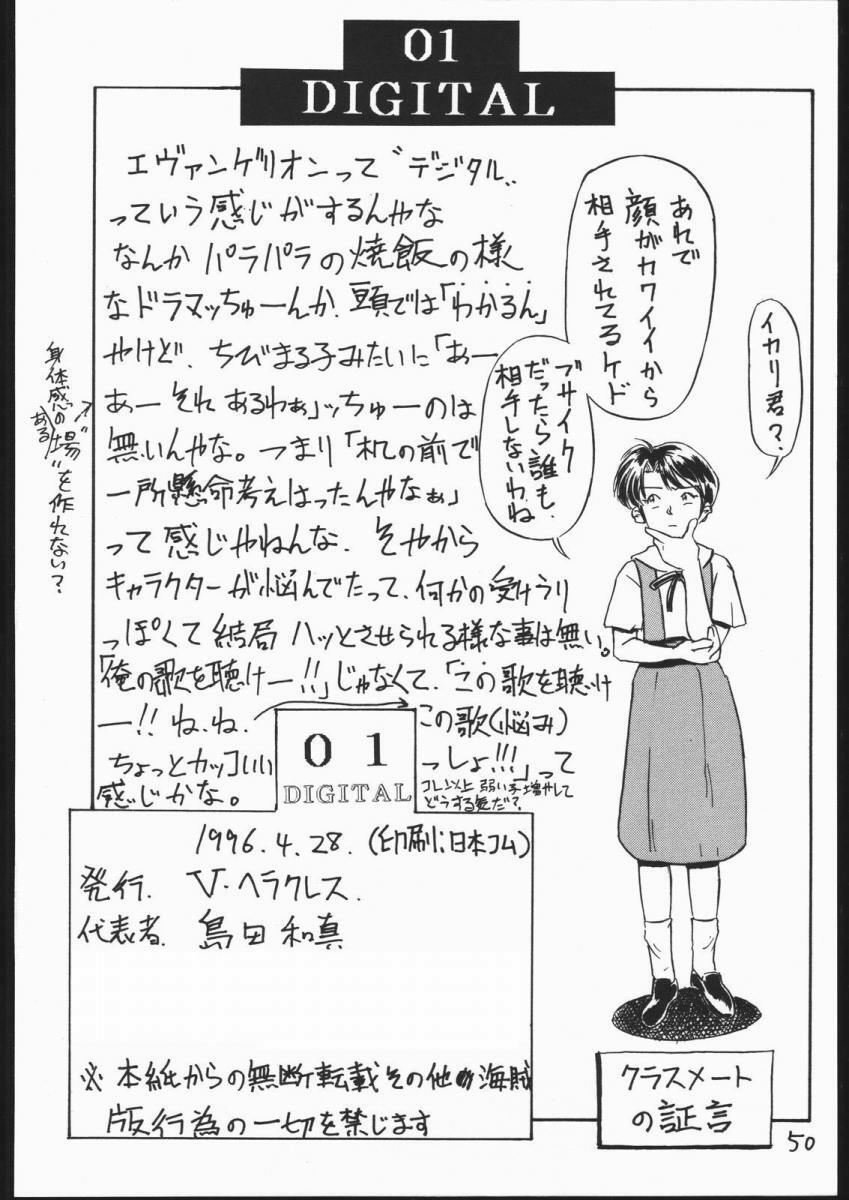 01
DIGITAL
エヴァンゲリオンって〝デジタル〟
っていう感じがするんやな
なんか パラパラの焼飯の様
なドラマッちゅーんか、頭では「わかるん」
やけど、ちびまる子みたいに「あぁー
あー それ あるわぁ」ッちゅーのは
無いんやな。つまり「机の前で
一所懸命考えはったんやなぁ」
って 感じやねんな、そやから
キャラクターが悩んでたって、何かの受けうり
っぽくて 結局 ハッとさせられる様な事は無い。
「俺の歌を聴けー!!」じゃなくて、「この歌を聴け
ー!! ね、ね、 この歌(悩み)
ちょっとカッコいい っしょ!!!」って
感じかな。
コレ以上 弱い子 増やして
どうする気だ?
身体感の
ある
〝場〟を作れない?
イカリ君?
あれで
顔がカワイイから
相手されてるケド
ブサイク
だったら誰も
相手しないわね
01
DIGITAL
1996.4.28.(印刷;日本コム)
発行. V・ヘラクレス.
代表者. 島田 和真
※ 本紙からの無断転載その他の海賊
版行為の一切を禁じます
クラスメート
の証言
50